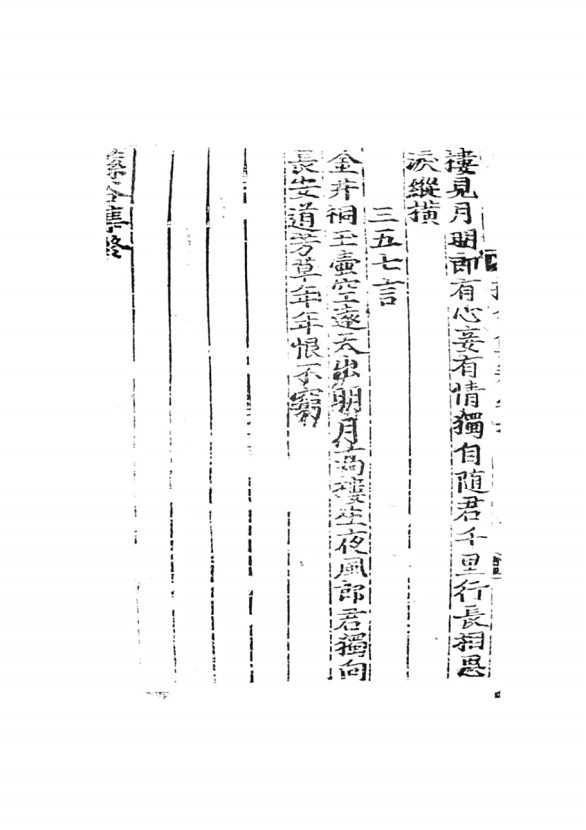 樓見月明郎有心妾有情獨自随君千里行長相思
淚縱橫
三五七言
金井祠玉壷空遠天出明月高樓生夜風郎君獨向
長安道芳草年年恨不窮
蓀谷集終